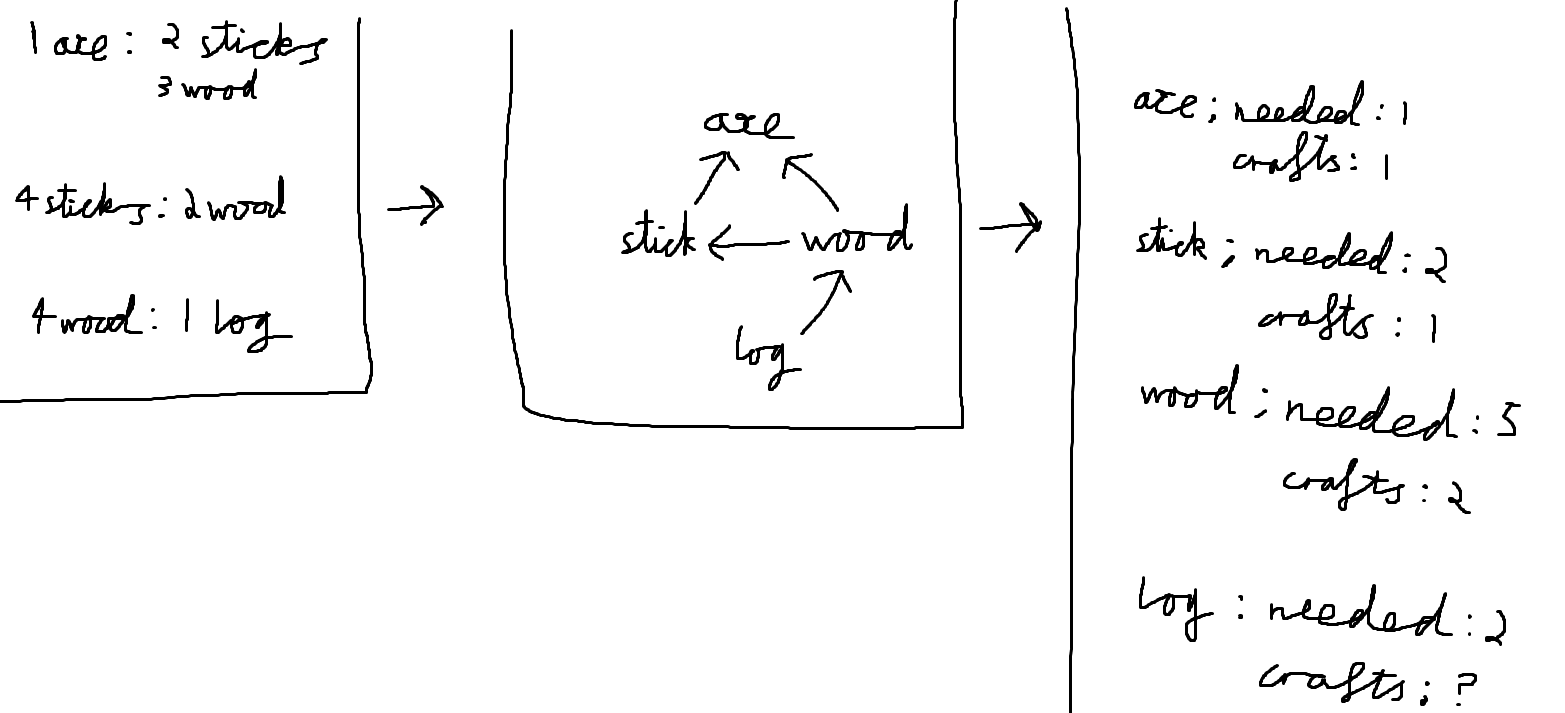 1 axe: 2 sticks
3 wood
4 sticks: 2 wood
4 wood: 1 log
axe
stick
wood
log
axe; needed: 1
crafts: 1
stick; needed: 2
crafts: 1
wood; needed: 5
crafts: 2
log: needed: 2
crafts; ?